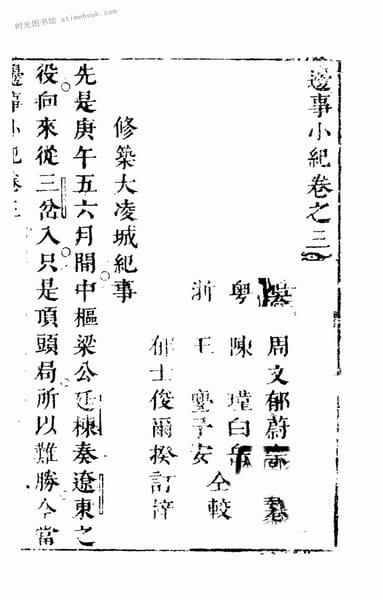 时光图书馆
邊事小紀卷之三
周文郁蔚
粤 陳 白
浙 王 子安
仝較
郁士俊爾揆訂梓
修築大凌城紀事
先是庚午五六月間中樞梁公廷棟奏遼東之
役向來從三岔入只是頂頭局所以難勝今當
邊事小紀卷三